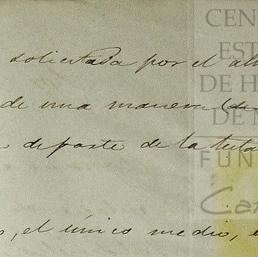 solicitada por el
de una manera
de parte de la
el único medio,
CEN
EST
DE H
DE
FUN